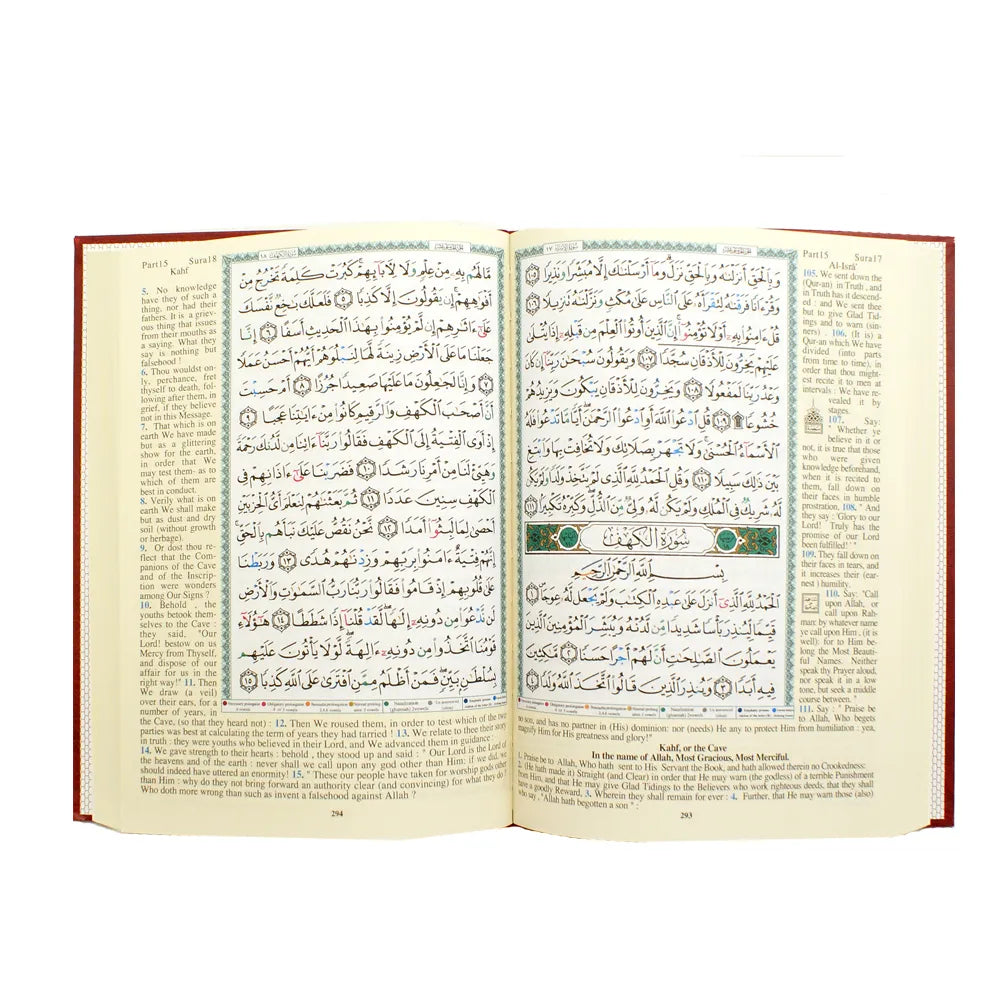 Part15 Sura17
Al-Isrâ'
وَبِالْحَقِّ أَنزَلْنَٰهُ وَبِالْحَقِّ نَزَلَ وَمَآ أَرْسَلْنَٰكَ إِلَّا مُبَشِّرًا وَنَذِيرًا ١٠٥
وَقُرْءَانًا فَرَقْنَٰهُ لِتَقْرَأَهُۥ عَلَى ٱلنَّاسِ عَلَىٰ مُكْثٍ وَنَزَّلْنَٰهُ تَنزِيلًا ١٠٦
قُلْ ءَامِنُوا۟ بِهِۦٓ أَوْ لَا تُؤْمِنُوٓا۟ إِنَّ ٱلَّذِينَ أُوتُوا۟ ٱلْعِلْمَ مِن قَبْلِهِۦٓ إِذَا يُتْلَىٰ
عَلَيْهِمْ يَخِرُّونَ لِلْأَذْقَانِ سُجَّدًا ١٠٧ وَيَقُولُونَ سُبْحَٰنَ رَبِّنَآ إِن كَانَ
وَعْدُ رَبِّنَا لَمَفْعُولًا ١٠٨ وَيَخِرُّونَ لِلْأَذْقَانِ يَبْكُونَ وَيَزِيدُهُمْ
خُشُوعًا ۩ ١٠٩ قُلِ ٱدْعُوا۟ ٱللَّهَ أَوِ ٱدْعُوا۟ ٱلرَّحْمَٰنَ أَيًّا مَّا تَدْعُوا۟ فَلَهُ
ٱلْأَسْمَآءُ ٱلْحُسْنَىٰ وَلَا تَجْهَرْ بِصَلَاتِكَ وَلَا تُخَافِتْ بِهَا وَٱبْتَغِ
بَيْنَ ذَٰلِكَ سَبِيلًا ١١٠ وَقُلِ ٱلْحَمْدُ لِلَّهِ ٱلَّذِى لَمْ يَتَّخِذْ وَلَدًا وَلَمْ يَكُن
لَّهُۥ شَرِيكٌ فِى ٱلْمُلْكِ وَلَمْ يَكُن لَّهُۥ وَلِىٌّ مِّنَ ٱلذُّلِّ وَكَبِّرْهُ تَكْبِيرًۢا ١١١
سُورَةُ الكَهْفِ
بِسْمِ ٱللَّهِ ٱلرَّحْمَٰنِ ٱلرَّحِيمِ
ٱلْحَمْدُ لِلَّهِ ٱلَّذِىٓ أَنزَلَ عَلَىٰ عَبْدِهِ ٱلْكِتَٰبَ وَلَمْ يَجْعَل لَّهُۥ عِوَجَا ١
قَيِّمًا لِّيُنذِرَ بَأْسًا شَدِيدًا مِّن لَّدُنْهُ وَيُبَشِّرَ ٱلْمُؤْمِنِينَ ٱلَّذِينَ
يَعْمَلُونَ ٱلصَّٰلِحَٰتِ أَنَّ لَهُمْ أَجْرًا حَسَنًا ٢ مَّٰكِثِينَ
فِيهِ أَبَدًا ٣ وَيُنذِرَ ٱلَّذِينَ قَالُوا۟ ٱتَّخَذَ ٱللَّهُ وَلَدًا ٤
105. We sent down the
(Qur-an) in Truth , and
in Truth has it descend-
ed : and We sent thee
but to give Glad Tid-
ings and to warn (sin-
ners) . 106. (It is) a
Qur-an which We have
divided (into parts
from time to time), in
order that thou might-
est recite it to men at
intervals : We have re-
vealed it by
stages.
107. Say:
" Whether ye
believe in it or
not, it is true that those
who were given
knowledge beforehand,
when it is recited to
them, fall down on
their faces in humble
prostration, 108. " And
they say : 'Glory to our
Lord! Truly has the
promise of our Lord
been fulfilled!' "
109. They fall down on
their faces in tears, and
it increases their (ear-
nest ) humility.
110. Say: "Call
upon Allah, or
call upon Rah-
man: by whatever name
ye call upon Him , (it is
well): for to Him be-
long the Most Beauti-
ful Names. Neither
speak thy Prayer aloud,
nor speak it in a low
tone, but seek a middle
course between. "
111. Say : " Praise be
to Allah, Who begets
no son, and has no partner in (His) dominion: nor (needs) He any to protect Him from humiliation : yea,
magnify Him for His greatness and glory!"
Kahf, or the Cave
In the name of Allah, Most Gracious, Most Merciful.
1. Praise be to Allah, Who hath sent to His Servant the Book, and hath allowed therein no Crookedness:
2. (He hath made it) Straight (and Clear) in order that He may warn (the godless) of a terrible Punishment
from Him, and that He may give Glad Tidings to the Believers who work righteous deeds, that they shall
have a goodly Reward, 3. Wherein they shall remain for ever : 4. Further, that He may warn those (also)
who say , "Allah hath begotten a son" :
293
Part15 Sura18
Kahf
مَّا لَهُم بِهِۦ مِنْ عِلْمٍ وَلَا لِءَابَآئِهِمْ كَبُرَتْ كَلِمَةً تَخْرُجُ مِنْ
أَفْوَٰهِهِمْ إِن يَقُولُونَ إِلَّا كَذِبًا ٥ فَلَعَلَّكَ بَٰخِعٌ نَّفْسَكَ
عَلَىٰٓ ءَاثَٰرِهِمْ إِن لَّمْ يُؤْمِنُوا۟ بِهَٰذَا ٱلْحَدِيثِ أَسَفًا ٦ إِنَّا
جَعَلْنَا مَا عَلَى ٱلْأَرْضِ زِينَةً لَّهَا لِنَبْلُوَهُمْ أَيُّهُمْ أَحْسَنُ عَمَلًا
٧ وَإِنَّا لَجَٰعِلُونَ مَا عَلَيْهَا صَعِيدًا جُرُزًا ٨ أَمْ حَسِبْتَ
أَنَّ أَصْحَٰبَ ٱلْكَهْفِ وَٱلرَّقِيمِ كَانُوا۟ مِنْ ءَايَٰتِنَا عَجَبًا ٩
إِذْ أَوَى ٱلْفِتْيَةُ إِلَى ٱلْكَهْفِ فَقَالُوا۟ رَبَّنَآ ءَاتِنَا مِن لَّدُنكَ رَحْمَةً
وَهَيِّئْ لَنَا مِنْ أَمْرِنَا رَشَدًا ١٠ فَضَرَبْنَا عَلَىٰٓ ءَاذَانِهِمْ فِى
ٱلْكَهْفِ سِنِينَ عَدَدًا ١١ ثُمَّ بَعَثْنَٰهُمْ لِنَعْلَمَ أَىُّ ٱلْحِزْبَيْنِ
أَحْصَىٰ لِمَا لَبِثُوٓا۟ أَمَدًا ١٢ نَّحْنُ نَقُصُّ عَلَيْكَ نَبَأَهُم بِٱلْحَقِّ
إِنَّهُمْ فِتْيَةٌ ءَامَنُوا۟ بِرَبِّهِمْ وَزِدْنَٰهُمْ هُدًى ١٣ وَرَبَطْنَا
عَلَىٰ قُلُوبِهِمْ إِذْ قَامُوا۟ فَقَالُوا۟ رَبُّنَا رَبُّ ٱلسَّمَٰوَٰتِ وَٱلْأَرْضِ
لَن نَّدْعُوَا۟ مِن دُونِهِۦٓ إِلَٰهًا لَّقَدْ قُلْنَآ إِذًا شَطَطًا ١٤ هَٰٓؤُلَآءِ
قَوْمُنَا ٱتَّخَذُوا۟ مِن دُونِهِۦٓ ءَالِهَةً لَّوْلَا يَأْتُونَ عَلَيْهِم
بِسُلْطَٰنٍۭ بَيِّنٍ فَمَنْ أَظْلَمُ مِمَّنِ ٱفْتَرَىٰ عَلَى ٱللَّهِ كَذِبًا ١٥
5. No knowledge
have they of such a
thing, nor had their
fathers. It is a griev-
ous thing that issues
from their mouths as
a saying. What they
say is nothing but
falsehood !
6. Thou wouldst on-
ly, perchance, fret
thyself to death, fol-
lowing after them, in
grief, if they believe
not in this Message.
7. That which is on
earth We have made
but as a glittering
show for the earth,
in order that We
may test them- as to
which of them are
best in conduct.
8. Verily what is on
earth We shall make
but as dust and dry
soil (without growth
or herbage).
9. Or dost thou re-
flect that the Com-
panions of the Cave
and of the Inscrip-
tion were wonders
among Our Signs ?
10. Behold , the
youths betook them-
selves to the Cave :
they said, "Our
Lord! bestow on us
Mercy from Thyself,
and dispose of our
affair for us in the
right way!" 11. Then
We draw (a veil)
over their ears, for a
number of years, in
the Cave, (so that they heard not) : 12. Then We roused them, in order to test which of the two
parties was best at calculating the term of years they had tarried ! 13. We relate to thee their story
in truth : they were youths who believed in their Lord, and We advanced them in guidance :
14. We gave strength to their hearts : behold , they stood up and said : " Our Lord is the Lord of
the heavens and of the earth : never shall we call upon any god other than Him: if we did, we
should indeed have uttered an enormity! 15. " These our people have taken for worship gods other
than Him : why do they not bring forward an authority clear (and convincing) for what they do ?
Who doth more wrong than such as invent a falsehood against Allah ?
294